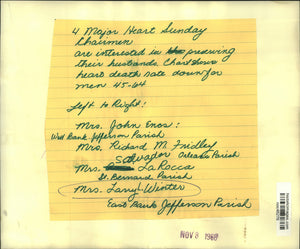 4 Major Heart Sunday
Chairmen
are interested in preserving
their husbands. Chart shows
heart death rate down for
men 45-64
Left to Right:
Mrs. John Enos:
West Bank Jefferson Parish
Mrs. Richard M. Fridley
Orleans Parish
Mrs. Salvador La Rocca
St. Bernard Parish
Mrs. Larry Winter
East Bank Jefferson Parish
NOV 8